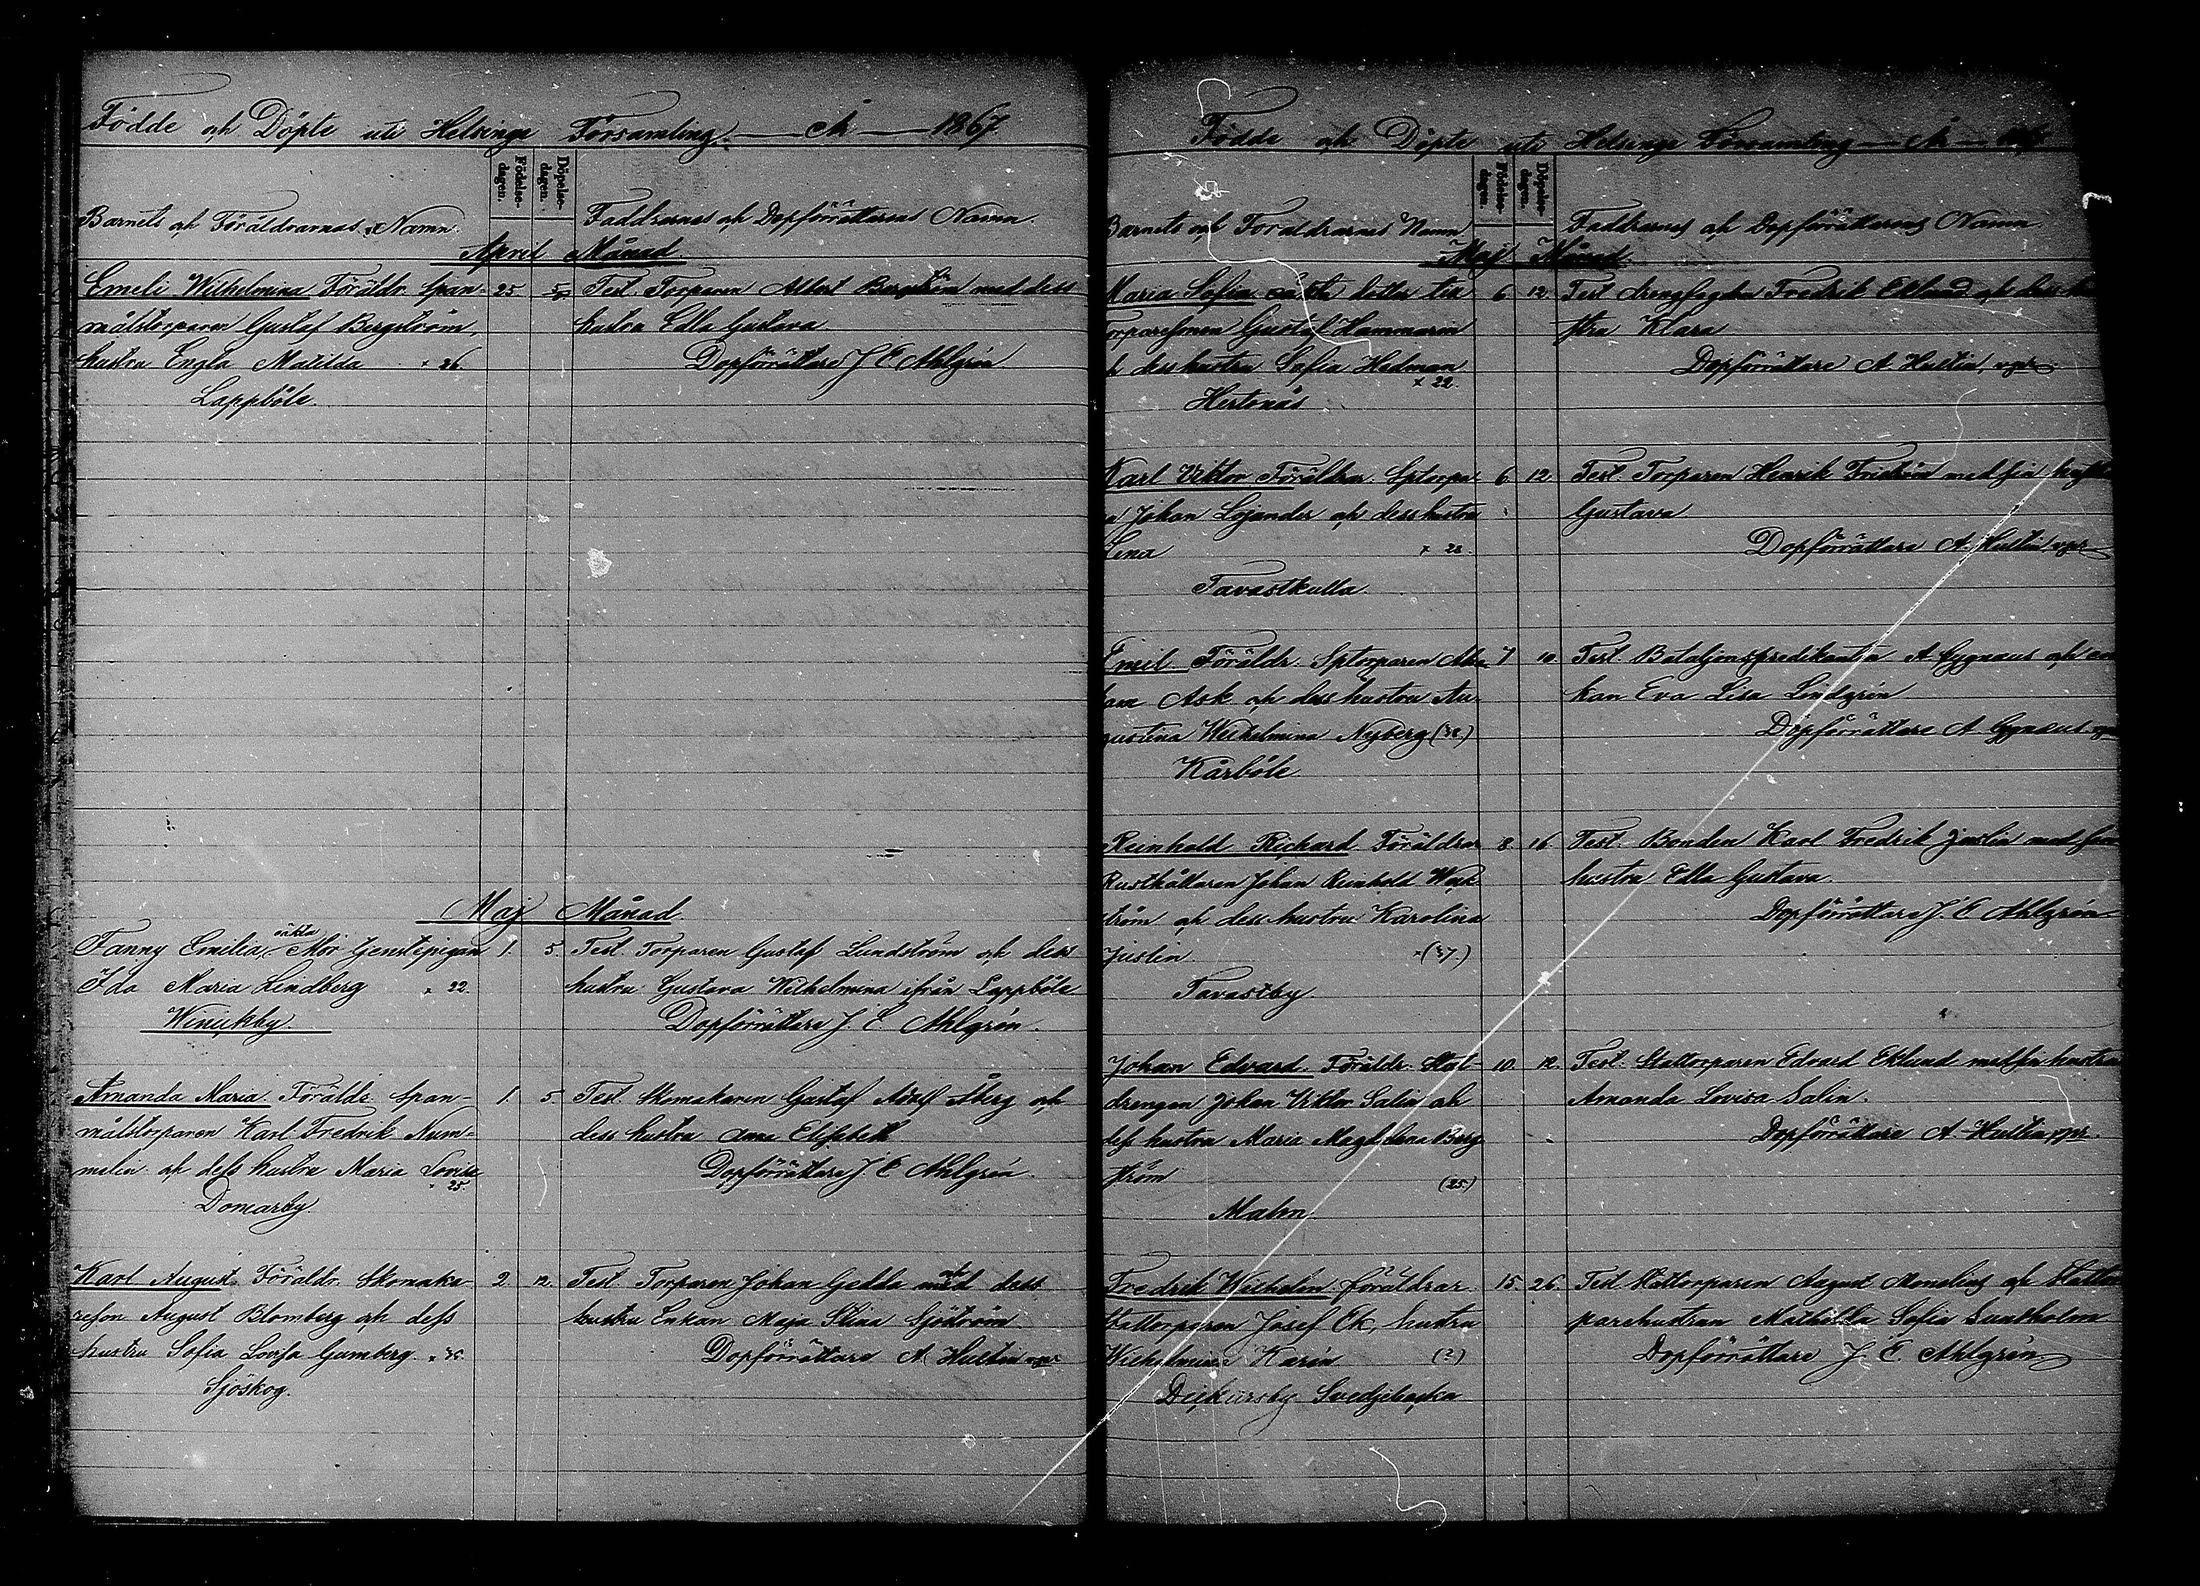 Födde och Döpte uti Helsinge Församling — År — 1867
Barnets och Föräldrarnas Namn.
Födelse-dagen.
Döpelse-dagen.
Faddrarnes och Dopförrättarens Namn.
April Månad
Emeli Wilhelmina Föräldr. Span- 25 5 Test. Torparen Albert Bergström med dess
målstorparen Gustaf Bergström, hustru Edla Gustava
hustru Engla Matilda x 26. Dopförrättare J. E. Ahlgrén
Lappböle.
Maj Månad
Fanny Emilia, oäkta Mor Jenstepigan 1. 5. Test. Torparen Gustaf Lundström och dess
Ida Maria Lindberg x 22. hustru Gustava Wilhelmina ifrån Lappböle
Winikby. Dopförrättare J. E. Ahlgrén.
Amanda Maria Föräldr. Span- 1. 5. Test. Skomakaren Gustaf Adolf Åberg och
målstorparen Karl Fredrik Num- dess hustru Anna Elisabeth
melin och dess hustru Maria Lovisa x 25. Dopförrättare J. E. Ahlgrén.
Domarby.
Karl August, Föräldr. Skomaka- 2. 12. Test. Torparen Johan Gedda och dess
reson August Blomberg och dess hustru Enkan Maja Stina Sjöström
hustru Sofia Lovisa Gumberg. Dopförrättare A. Hultin vpr
Sjöskog.
Födde och Döpte uti Helsinge Församling — År —
Barnets och Föräldrarnes Namn
Födelse-dagen.
Döpelse-dagen.
Faddrarnes och Dopförrättarens Namn
Maj Månad
Maria Sofia oäkta dotter till 6 12 Test. drengfogden Fredrik Eklund och dess hu
torparesonen Gustaf Hammarén stru Klara
dess hustru Sofia Hedman x 22. Dopförrättare A. Hultin, vpr
Hertonäs
Karl Viktor Föräldrar Sptorpa- 6 12. Test. Torparen Henrik Fridström med sin hustru
Johan Lojander och dess hustru Gustava
Lena x 28. Dopförrättare A. Hultin vpr
Tavastkulla.
Emil Föräldr. Sptorparen 7 10 Test. Bataljonspredikanten A. Cygnaus och en
Ask och dess hustru Au- kan Eva Lisa Lindgrén
gustina Wilhelmina Nyberg Dopförrättare A. Cygnaeus
Kårböle
Reinhold Richard. Föräldrar 8. 16. Test. Bonden Karl Fredrik Juslin med sin
Rusthållaren Johan Reinhold Wek- hustru Edla Gustava.
ström och dess hustru Karolina Dopförrättare J. E. Ahlgrén
Juslin x (37.)
Tavastby.
Johan Edvard. Föräldr. Stat- 10. 12. Test. Stattorparen Edvard Eklund med sin hustru
drengen Johan Viktor Salin och Amanda Lovisa Salin.
dess hustru Maria Magdalena Berg Dopförrättare A. Hultin vpr.
ström (25.)
Malm.
Fredrik Wilhelm, föräldrar 15. 26. Test. Stattorparen August Momelius och Stattor
Stattorparen Josef Ek, hustru parehustrun Mathilda Sofia Sundholm
Wilhelmina Karin (?) Dopförrättare J. E. Ahlgrén
Dickursby Svedjebacka